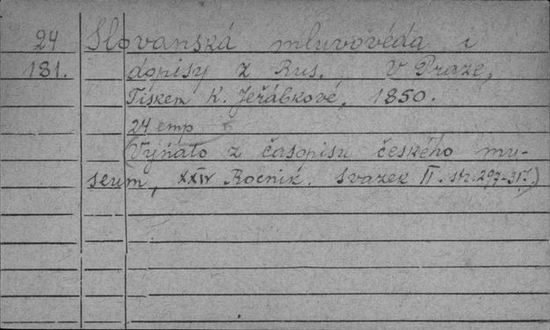 24 Slovanská mluvověda i
181. dopisy z Rus. V Praze,
Tiskem K. Jeřábkové, 1850.
24 emp
(Vyňato z časopisu českého mu-
seum, XXIV Ročník. Svazek II. str. 297-317.)